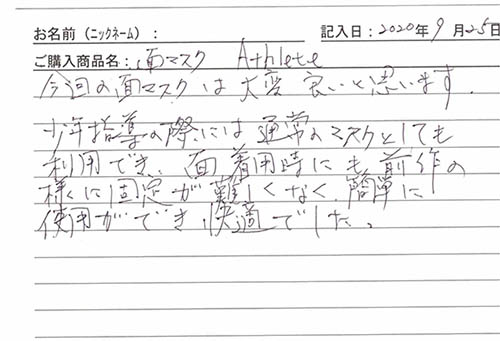 お名前（ニックネーム）： 記入日：2020年9月25日
ご購入商品名：面マスク Athlete
今回の面マスクは大変良いと思います。
少年指導の際には通常のマスクとしても
利用でき、面着用時にも前作の
様に固定が難しくなく、簡単に
使用ができ快適でした。